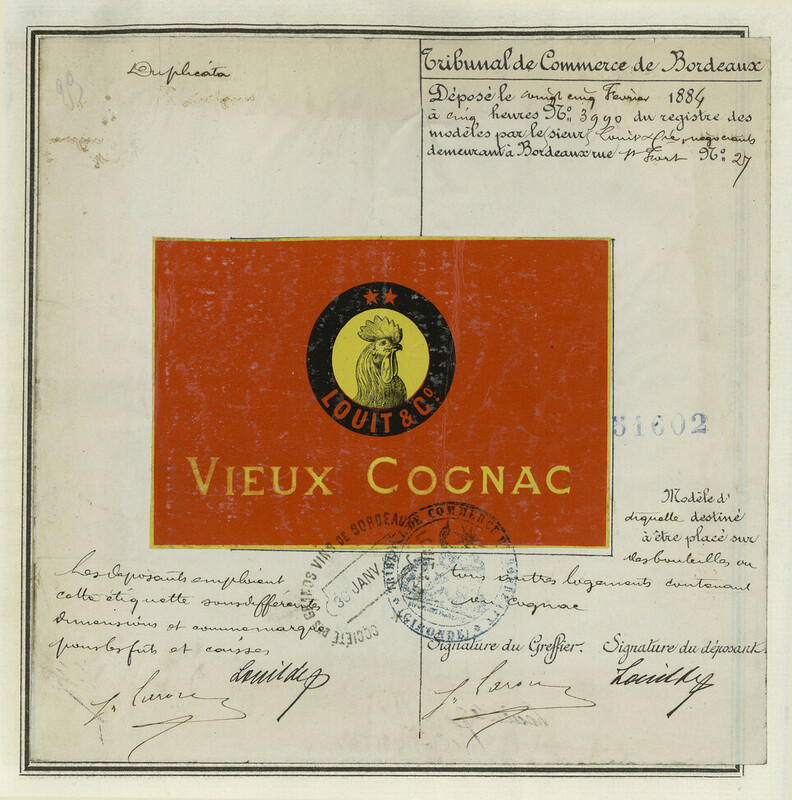 Duplicata
Tribunal de Commerce de Bordeaux
Déposé le vingt cinq Février 1884
à cinq heures No. 3990 du registre des
modèles par le sieur Louit & Cie, négociants
demeurant à Bordeaux rue St Fort No. 27
LOUIT & Co.
VIEUX COGNAC
51602
Modèle d'
étiquette destiné
à être placé sur
des bouteilles ou
tous autres logements contenant
du cognac
Les déposants emploient
cette étiquette sous différentes
dimensions et comme marque
pour les fûts et caisses
SOCIÉTÉ DES GRANDS VINS DE BORDEAUX
30 JANV
DE COMMERCE
(GIRONDE)
Signature du Greffier. Signature du déposant.
Louit & Cie
Louit & Cie